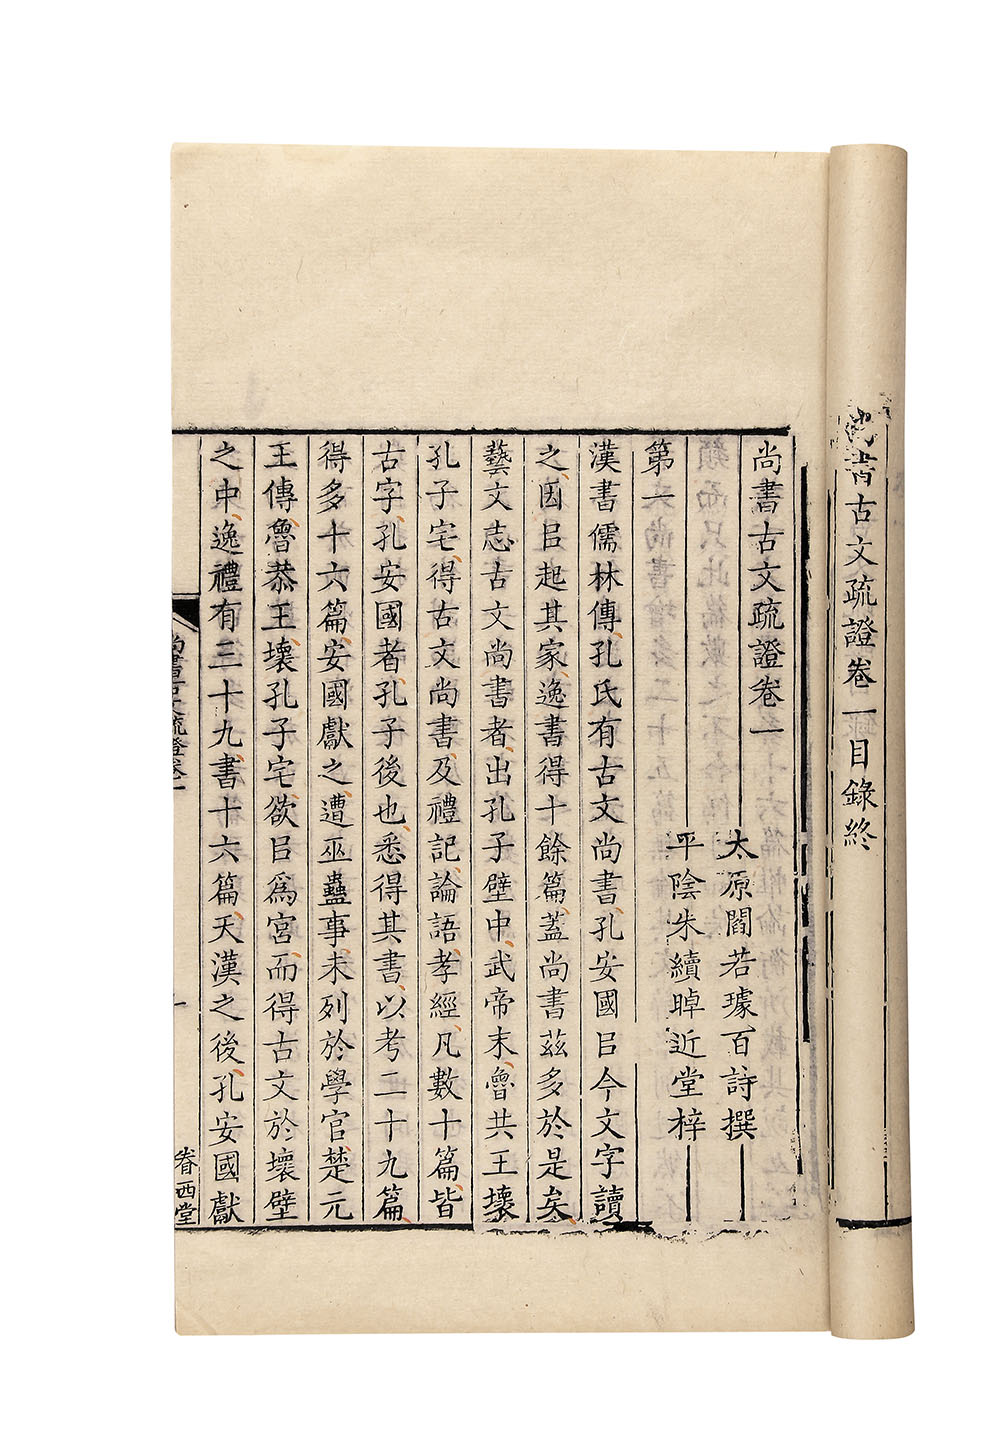 書古文疏證卷一目錄終
尚書古文疏證卷一
太原閻若璩百詩撰
平陰朱續晫近堂梓
第一
漢書儒林傳孔氏有古文尚書孔安國㠯今文字讀
之因㠯起其家逸書得十餘篇蓋尚書茲多於是矣
藝文志古文尚書者出孔子壁中武帝末魯共王壞
孔子宅得古文尚書及禮記論語孝經凡數十篇皆
古字孔安國者孔子後也悉得其書以考二十九篇
得多十六篇安國獻之遭巫蠱事未列於學官楚元
王傳魯恭王壞孔子宅欲㠯爲宮而得古文於壞壁
之中逸禮有三十九書十六篇天漢之後孔安國獻
尚書古文疏證卷一
一
眷西堂